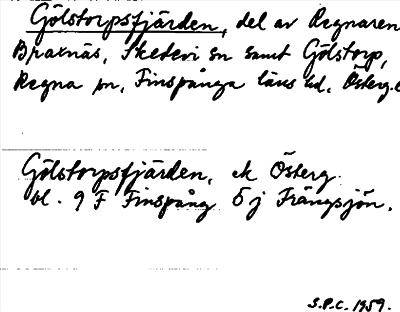 Gölstorpsfjärden, del av Regnaren
Braxnäs, Skedevi sn samt Gölstorp,
Regna sn, Finspånga läns hd, Österg.
Gölstorpsfjärden, ek Österg.
bl. 9 F Finspång 5 j
S.P.C. 1959.